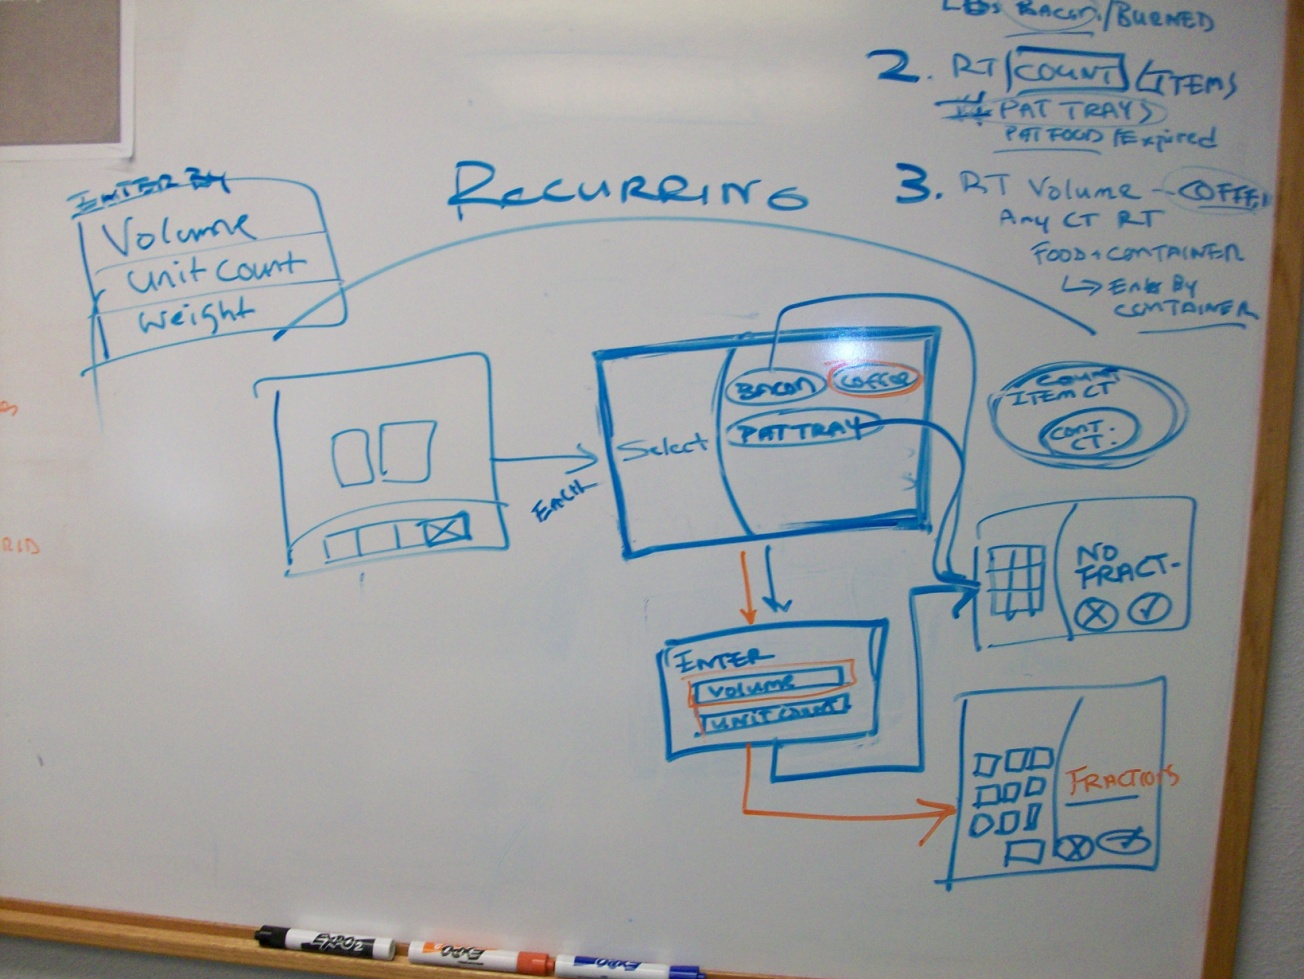 Bacon/BURNED
2. RT/COUNT/ITEMS
PAT TRAYS
PAT FOOD/Expired
3. RT Volume - COFFEE
Any CT RT
FOOD + CONTAINER
↳ Enter By
CONTAINER
RECURRING
ENTER By
Volume
unit count
weight
EACH
Select
BACON
COFFEE
PAT TRAY
COUNT
ITEM CT
CONT.
CT.
NO
FRACT-
ENTER
VOLUME
UNIT COUNT
FRACTIONS
RID
EXPO 2
EXPO
EXPO